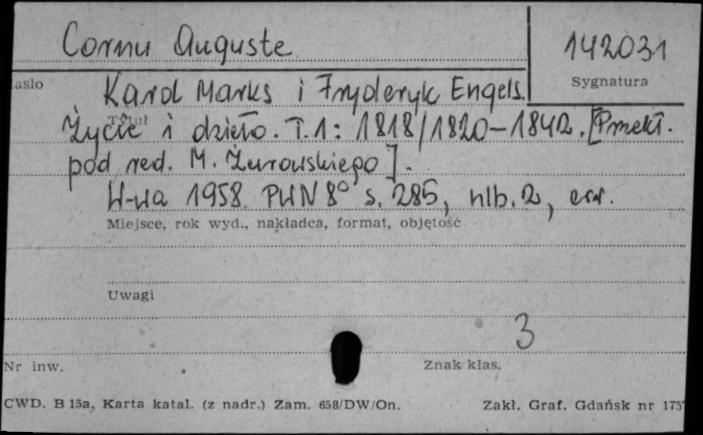 Cornu Auguste
142031
Sygnatura
asło
Karol Marks i Fryderyk Engels.
Tytuł
Życie i dzieło. T.1: 1818/1820-1842. [Przekł.
pod red. M. Żurowskiego].
W-wa 1958 PWN 8° s. 285, nlb. 2, err.
Miejsce, rok wyd., nakładca, format, objętość
Uwagi
3
Nr inw.
Znak klas.
CWD. B 15a. Karta katal. (z nadr.) Zam. 658/DW/On.
Zakł. Graf. Gdańsk nr 175